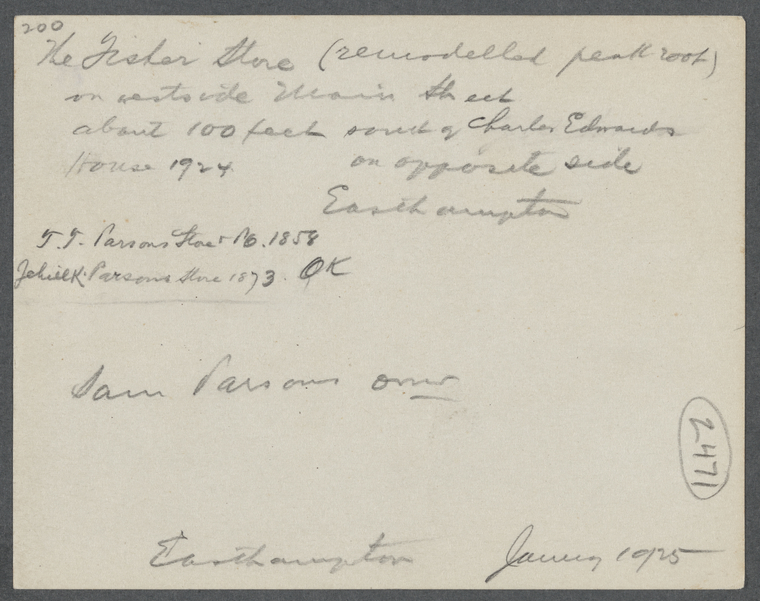 200
The Fisher Store (remodelled peak roof)
on westside Main Street
about 100 feet south of Charles Edwards
House 1924 on opposite side
Easthampton
T. T. Parsons Store & P.O. 1858
Jehiel K. Parsons Store 1873. OK
Sam Parsons owner
2471
Easthampton January 1925